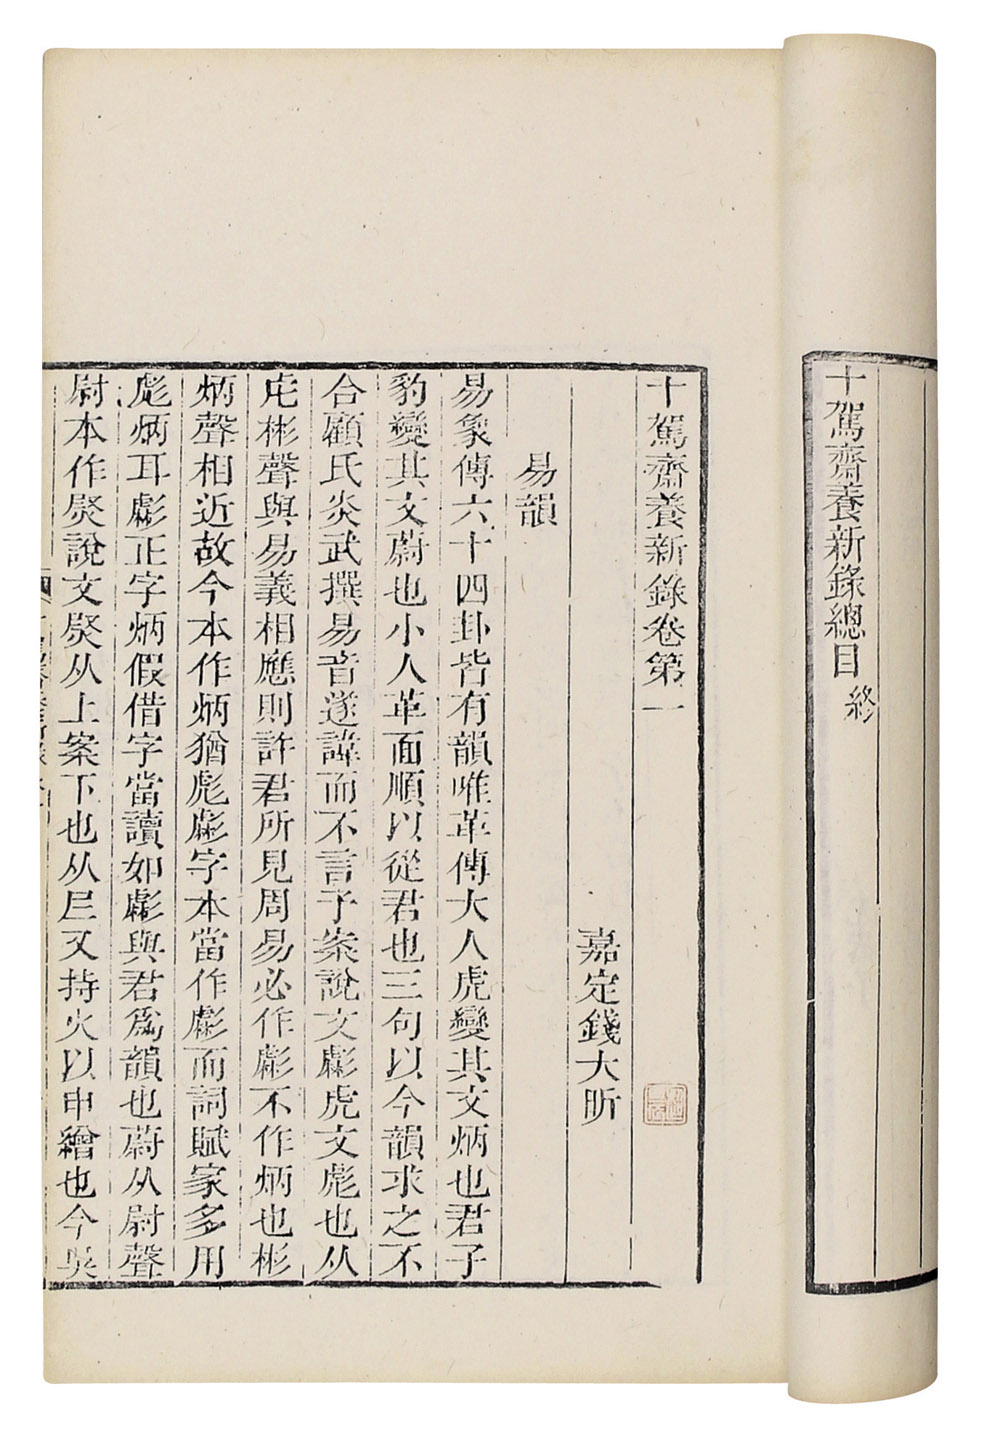 十駕齋養新錄總目 終
十駕齋養新錄卷第一
嘉定錢大昕
易韻
易象傳六十四卦皆有韻唯革傳大人虎變其文炳也君子
豹變其文蔚也小人革面順以從君也三句以今韻求之不
合顧氏炎武撰易音遂諱而不言予案說文彪虎文彪也从
虍彬聲與易義相應則許君所見周易必作彪不作炳也彬
炳聲相近故今本作炳猶彪彪字本當作彪而詞賦家多用
彪炳耳彪正字炳假借字當讀如彪與君為韻也蔚从尉聲
尉本作㷉說文㷉从上案下也从𡰥又持火以申繒也今吳